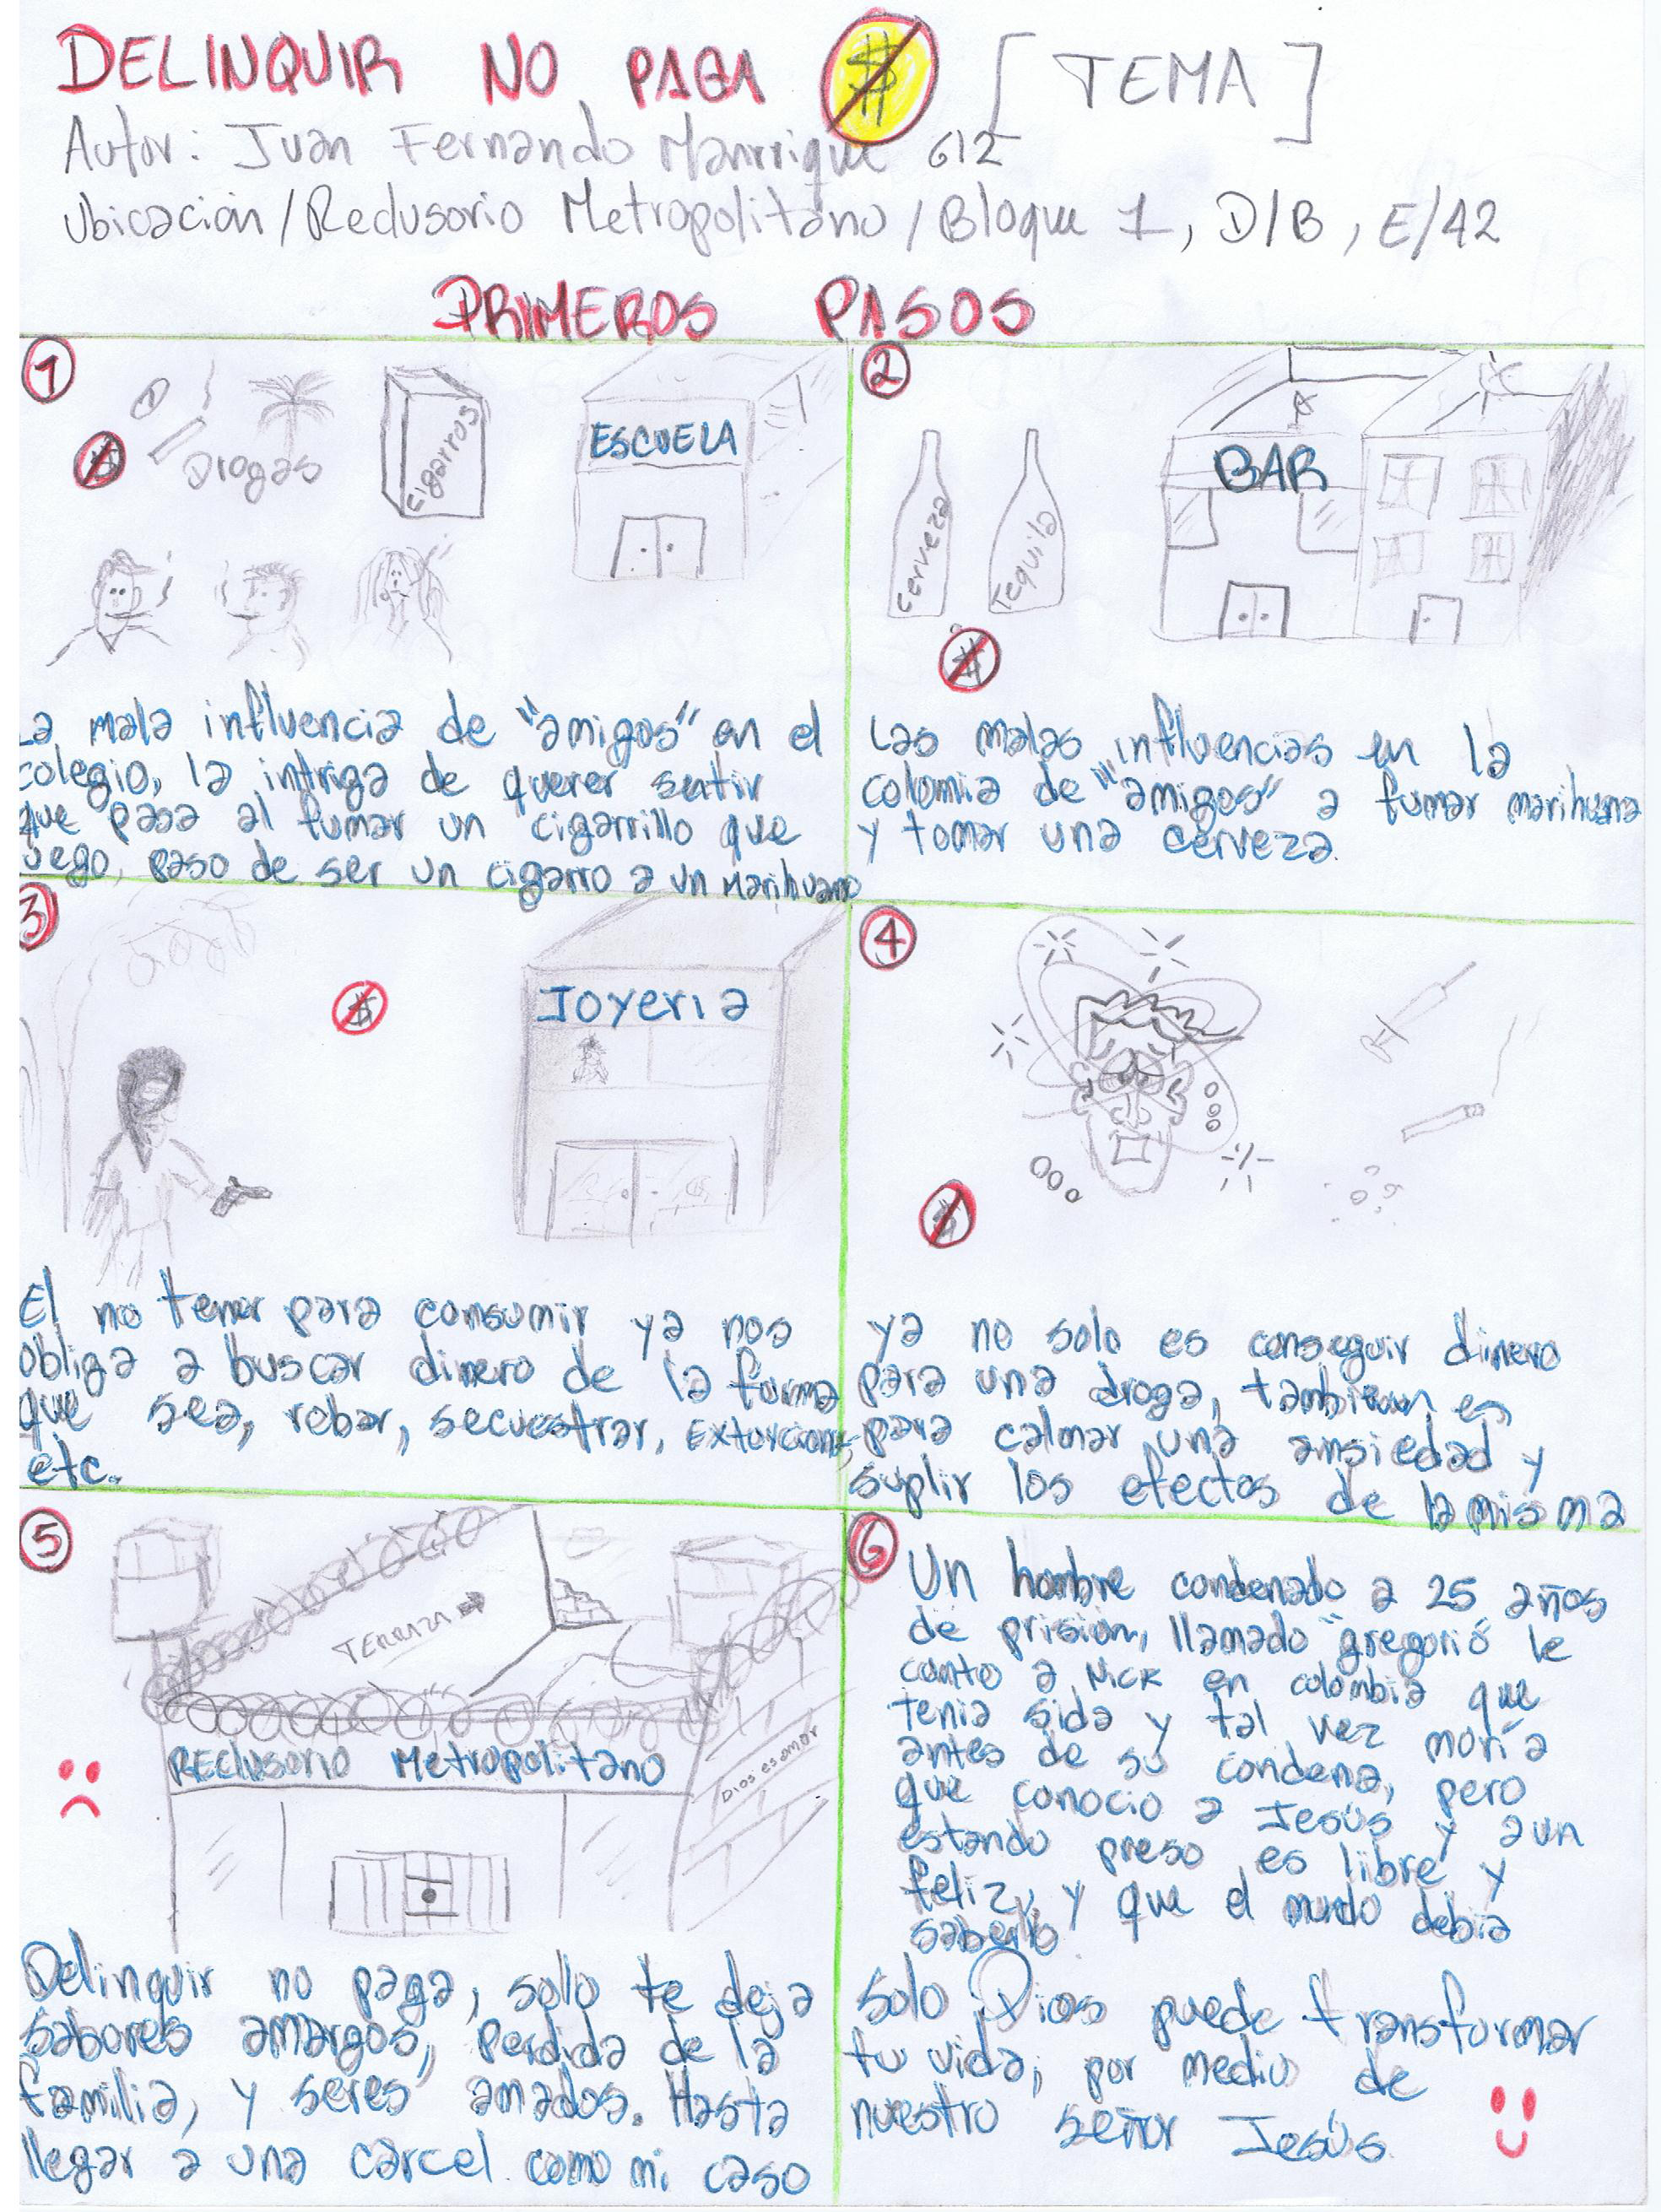 DELINQUIR NO PAGA $ [TEMA]
Autor: Juan Fernando Manrrique 612
Ubicación/Redusorio Metropolitano/Bloque 1, D/B, E/42
PRIMEROS PASOS
1
$
Drogas
Cigarros
ESCUELA
La mala influencia de "amigos" en el
colegio, la intriga de querer sentir
que pasa al fumar un cigarrillo que
luego, paso de ser un cigarro a un Marihuano
2
Cerveza
Tequila
BAR
$
Las malas influencias en la
colonia de "amigos" a fumar marihuana
y tomar una cerveza.
3
$
Joyeria
El no tener para consumir ya nos
obliga a buscar dinero de la forma
que sea, robar, secuestrar, Extorcions,
etc.
4
$
ya no solo es conseguir dinero
para una droga, tambien es
para calmar una ansiedad y
suplir los efectos de la misma
5
TERRAZA →
RECLUSORIO Metropolitano
Dios es amor
Delinquir no paga, solo te deja
sabores amargos, perdida de la
familia, y seres amados. Hasta
llegar a una cárcel como mi caso
6
Un hombre condenado a 25 años
de prision, llamado "gregorio" le
conto a Nick en colombia que
tenia sida y tal vez moría
antes de su condena, pero
que conocio a Jesús y aun
estando preso es libre y
feliz, y que el mundo debia
saberlo
solo Dios puede transformar
tu vida, por medio de
nuestro señor Jesús